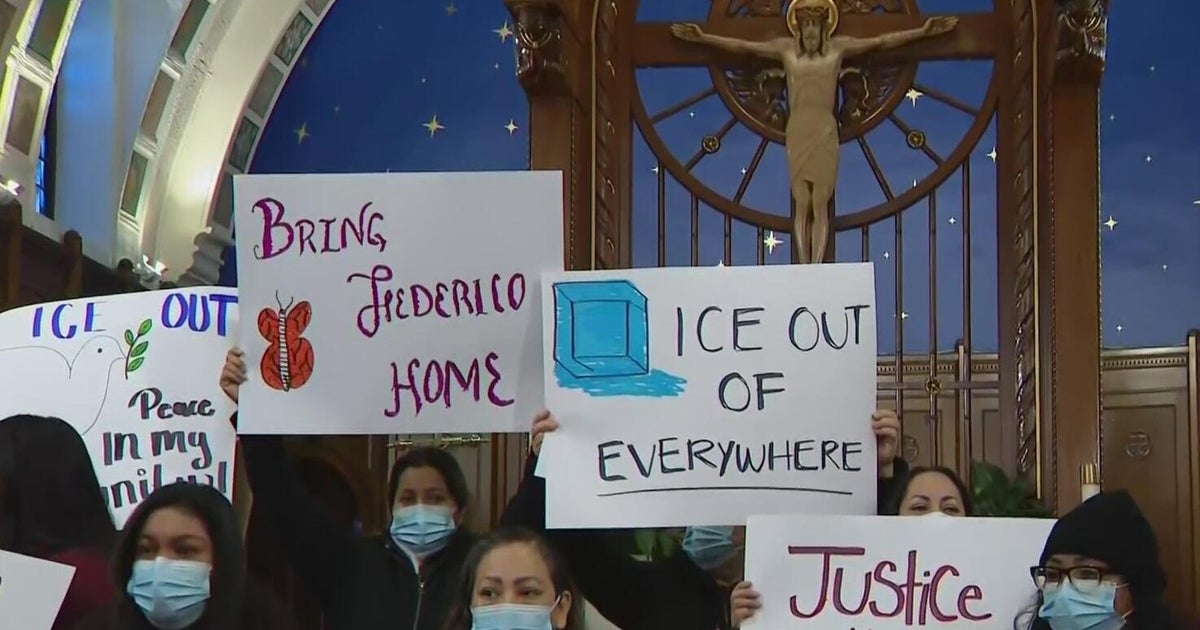 ICE OUT
Peace
In my
BRING
FEDERICO
HOME
ICE OUT
OF
EVERYWHERE
JUSTICE